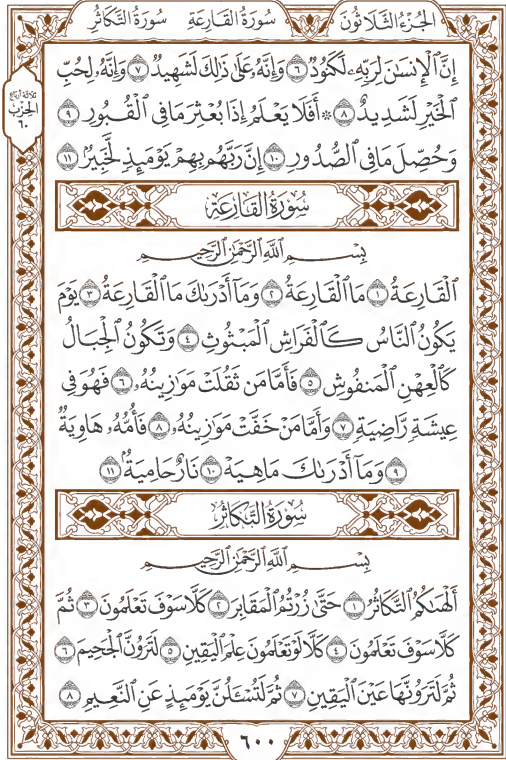 الجزء الثلاثون سورة القارعة سورة التكاثر
إِنَّ ٱلْإِنسَٰنَ لِرَبِّهِۦ لَكَنُودٌ ٦ وَإِنَّهُۥ عَلَىٰ ذَٰلِكَ لَشَهِيدٌ ٧ وَإِنَّهُۥ لِحُبِّ
ٱلْخَيْرِ لَشَدِيدٌ ٨ ۞ أَفَلَا يَعْلَمُ إِذَا بُعْثِرَ مَا فِى ٱلْقُبُورِ ٩
وَحُصِّلَ مَا فِى ٱلصُّدُورِ ١٠ إِنَّ رَبَّهُم بِهِمْ يَوْمَئِذٍ لَّخَبِيرٌۢ ١١
ثلاثة أرباع
الحزب
٦٠
سُورَةُ القَارِعَةِ
بِسْمِ ٱللَّهِ ٱلرَّحْمَٰنِ ٱلرَّحِيمِ
ٱلْقَارِعَةُ ١ مَا ٱلْقَارِعَةُ ٢ وَمَآ أَدْرَىٰكَ مَا ٱلْقَارِعَةُ ٣ يَوْمَ
يَكُونُ ٱلنَّاسُ كَٱلْفَرَاشِ ٱلْمَبْثُوثِ ٤ وَتَكُونُ ٱلْجِبَالُ
كَٱلْعِهْنِ ٱلْمَنفُوشِ ٥ فَأَمَّا مَن ثَقُلَتْ مَوَٰزِينُهُۥ ٦ فَهُوَ فِى
عِيشَةٍ رَّاضِيَةٍ ٧ وَأَمَّا مَنْ خَفَّتْ مَوَٰزِينُهُۥ ٨ فَأُمُّهُۥ هَاوِيَةٌ
٩ وَمَآ أَدْرَىٰكَ مَا هِيَهْ ١٠ نَارٌ حَامِيَةٌۢ ١١
سُورَةُ التَّكَاثُرِ
بِسْمِ ٱللَّهِ ٱلرَّحْمَٰنِ ٱلرَّحِيمِ
أَلْهَىٰكُمُ ٱلتَّكَاثُرُ ١ حَتَّىٰ زُرْتُمُ ٱلْمَقَابِرَ ٢ كَلَّا سَوْفَ تَعْلَمُونَ ٣ ثُمَّ
كَلَّا سَوْفَ تَعْلَمُونَ ٤ كَلَّا لَوْ تَعْلَمُونَ عِلْمَ ٱلْيَقِينِ ٥ لَتَرَوُنَّ ٱلْجَحِيمَ ٦
ثُمَّ لَتَرَوُنَّهَا عَيْنَ ٱلْيَقِينِ ٧ ثُمَّ لَتُسْـَٔلُنَّ يَوْمَئِذٍ عَنِ ٱلنَّعِيمِ ٨
٦٠٠